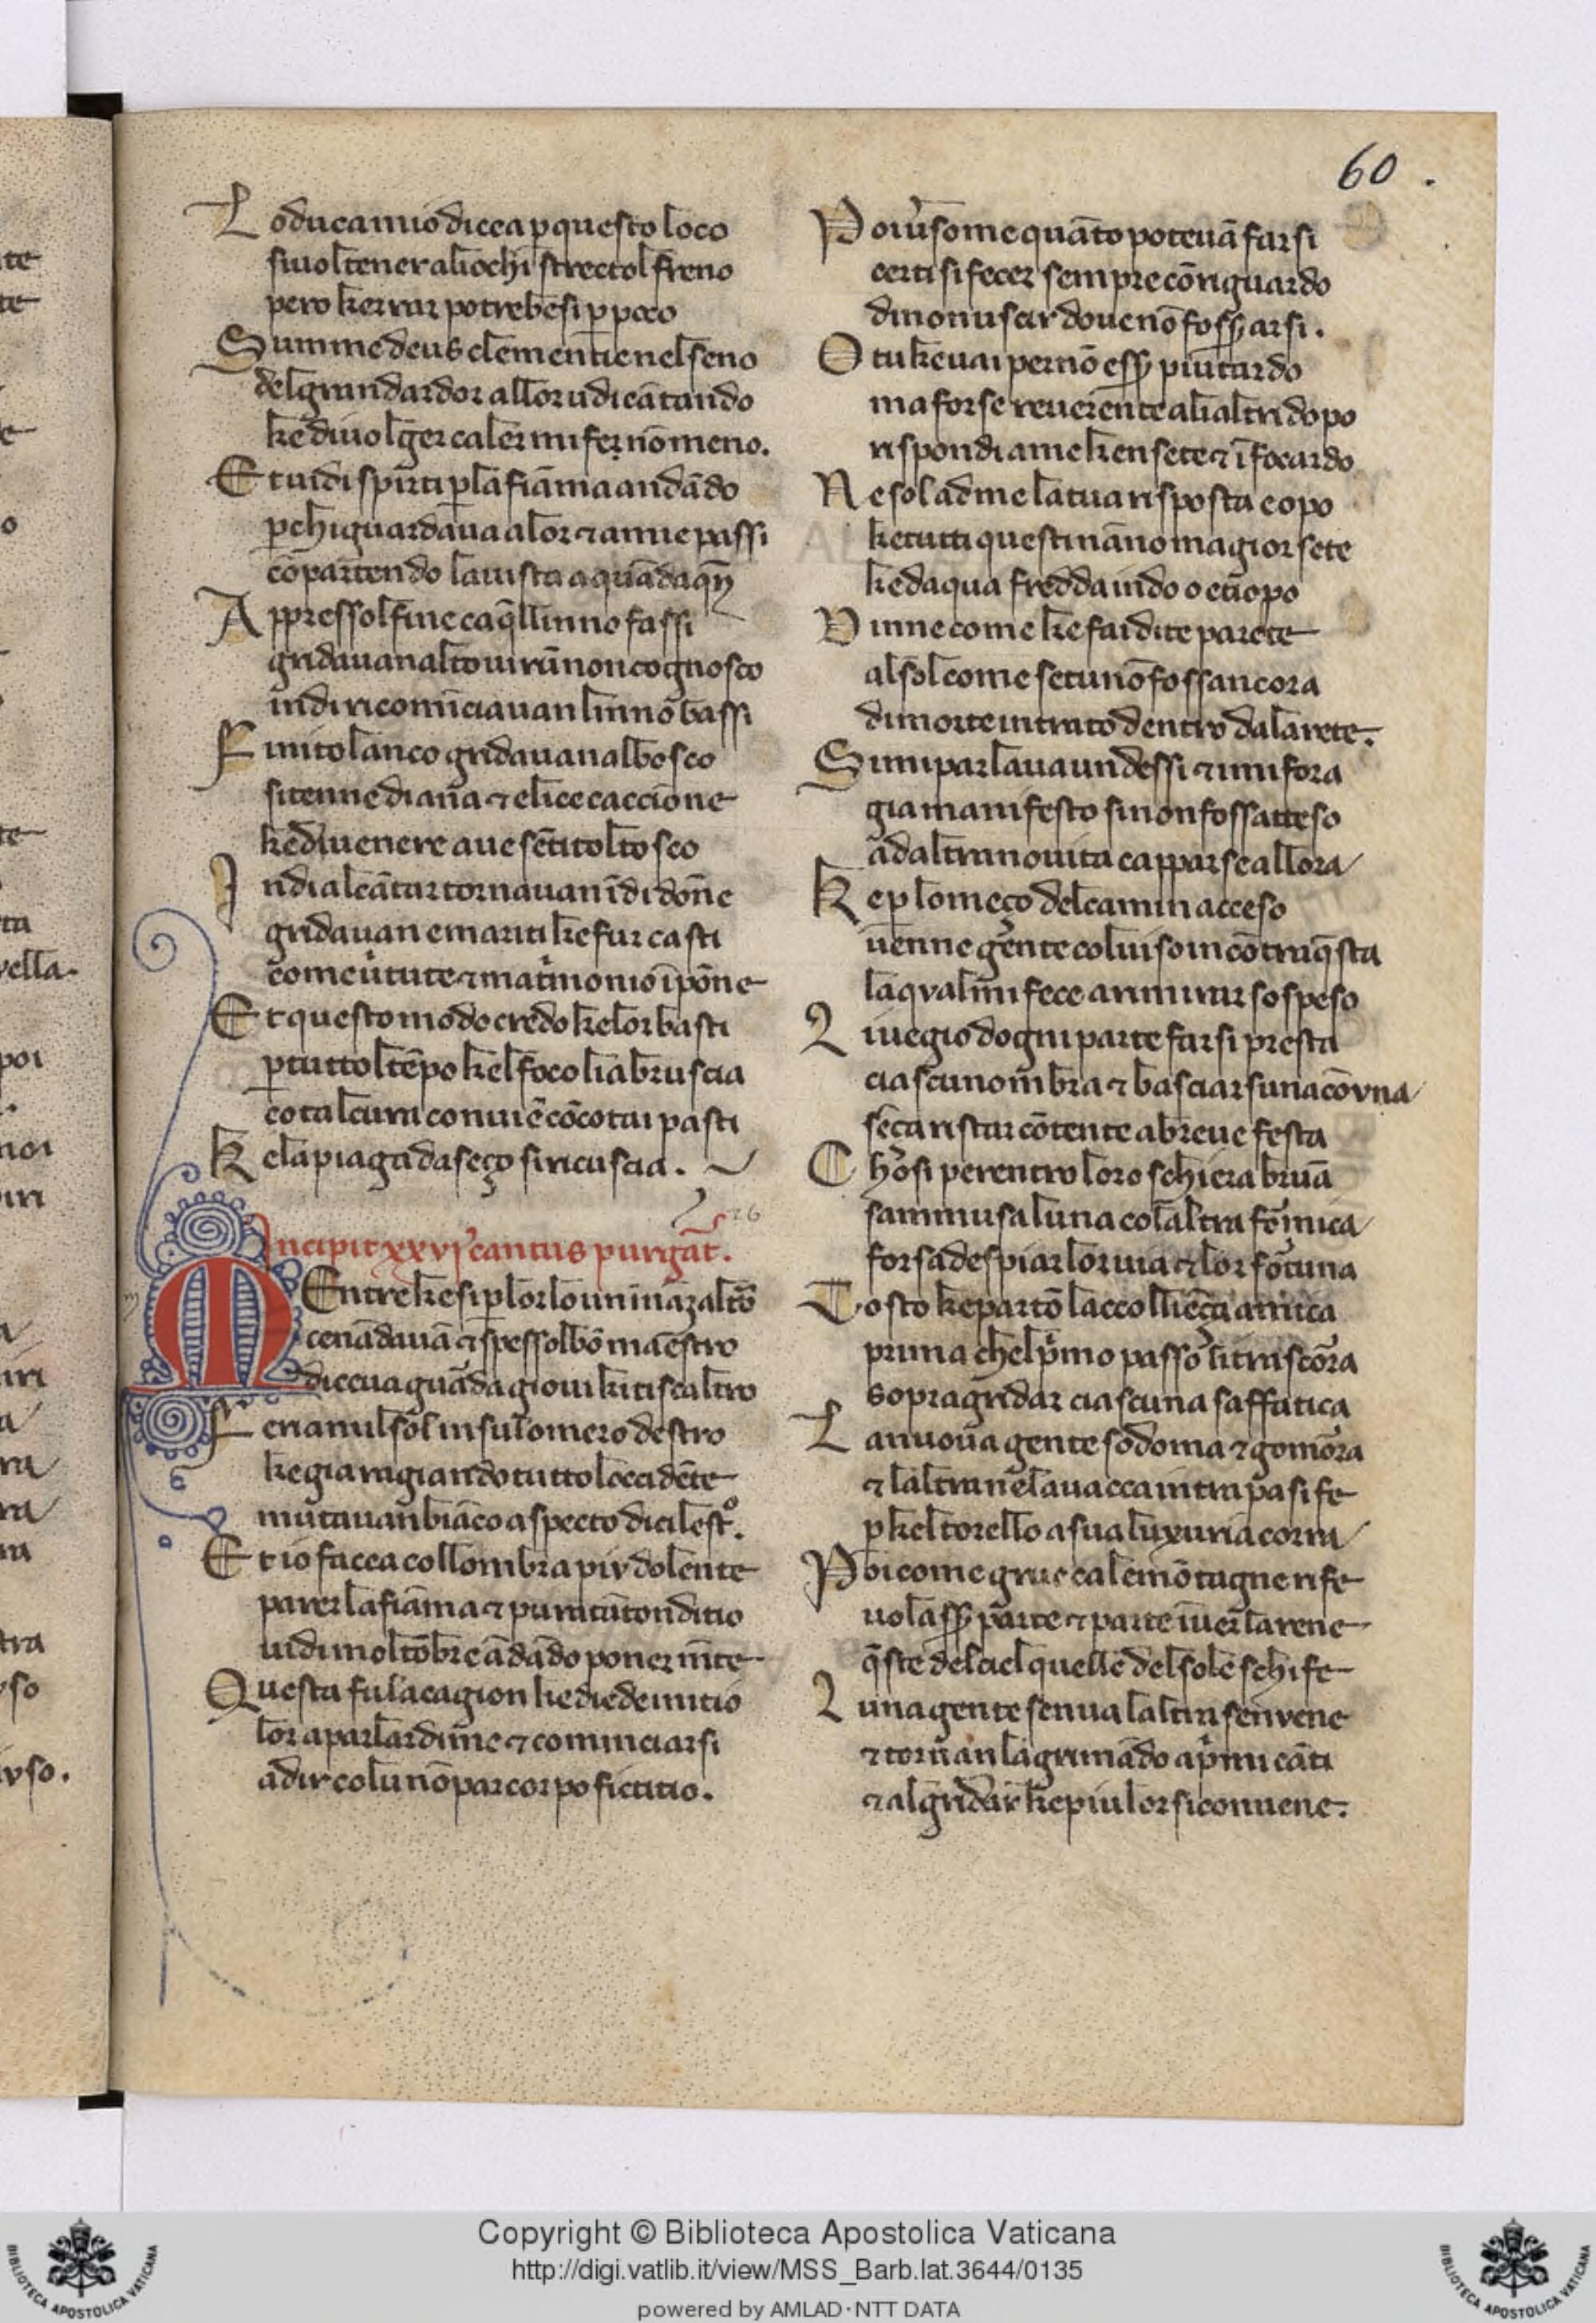 60.
Lo duca mio dicea p questo loco
si uol tener ali ochi strectol freno
pero kerrar potrebesi p poco
Summe deus clementie nel seno
del grandardor allor udi cātando
ke di uolger caler mi fer nō meno.
Et uidi spirti p la fiāma andādo
pch i guardaua a lor ⁊ a mie passi
cōpartendo la uista a quāda qn̄
Appressol fine ca q̄llinno fassi
gridauan alto uirū non cognosco
indi ricomīciauan linno bassi
Finitolanco gridauan al bosco
si tenne diana ⁊ elice caccione
ke di uenere aue sētitol tosco
Indi al cātar tornauan īdi dōne
gridauan e mariti ke fur casti
come ūtute ⁊ mat'monio īpōne
Et questo modo credo ke lor basti
p tuttol tēpo kel foco li abruscia
co tal cura conuiē cō cotai pasti
Ke la piaga da seçço si ricuscia.
26
Incipit xxvj cantus purgat̄.
Mentre ke si p lorlo un ināz altō
cenādauā ⁊ spessol bō maestro
diceua guāda gioui ki ti scaltro
Feriamil sol in sulomero destro
ke gia ragiando tutto loccidēte
mutauan biāco aspecto di cilest°.
Et io facea collombra piv dolente
parer la fiāma ⁊ pur a tāto nditio
uidi moltōbre ādādo poner mēte
Questa fu la cagion ke diede initio
lor a parlar di me ⁊ cominciarsi
a dir colu nō par corpo fictitio.
Poi ūso me quāto poteuā farsi
certi si fecer sempre cō riguardo
di nō nuscir doue nō foss̄ arsi.
O tu ke uai per nō ess̄ piu tardo
ma forse reuerente ali altri dopo
rispondi a me ken sete ⁊ ī foco ardo
Ne sol ad me la tua risposta e opo
ke tutti questi nāno magior sete
ke daqua fredda indo o etiopo
Dinne come ke fai di te parete
al sol come se tu nō fossancora
di morte intrato dentro da la rete.
Si mi parlaua un dessi ⁊ i mi fora
gia manifesto si non fossatteso
ad altra nouita capparse allora
Ke p lo meço del camin acceso
uenne gente col uiso incōtra q̄sta
la qval mi fece a rimirar sospeso
Li uegio dogni parte farsi presta
ciascunombra ⁊ basciarsi una cō vna
sēça ristar cōtente a breue festa
Chosi per entro loro schiera bruā
sammusa luna co laltra fōmica
forsa despiar lor uia ⁊ lor fōtuna
Tosto ke partō laccollieça amica
prima chel p'mo passo li trascōra
sopragridar ciascuna saffatica
La nuoua gente sodoma ⁊ gomōra
⁊ laltra ne la uacca intra pasife
p kel torello a sua luxuria corra
Poi come grue cale mōtagne rife
uolass̄ parte ⁊ parte iuer larene
q̄ste del ciel quelle del sole schife
Luna gente senua laltra senvene
⁊ tornan lagrimādo a p'mi cāti
⁊ al gridar ke piu lor si conuene.
Copyright © Biblioteca Apostolica Vaticana
http://digi.vatlib.it/view/MSS_Barb.lat.3644/0135
powered by AMLAD·NTT DATA
BIBLIOTECA APOSTOLICA VATICANA
BIBLIOTECA APOSTOLICA VATICANA